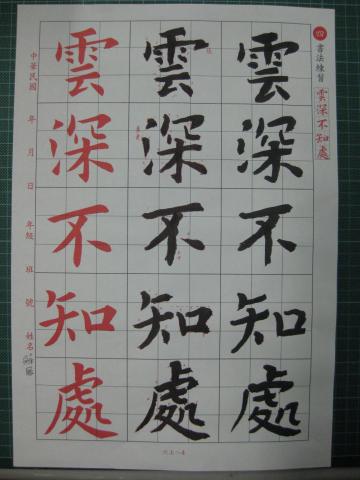 四 書法練習 雲深不知處
雲深不知處
雲深不知處
雲深不知處
中華民國 年 月 日 年級 班 號 姓名
六上~4